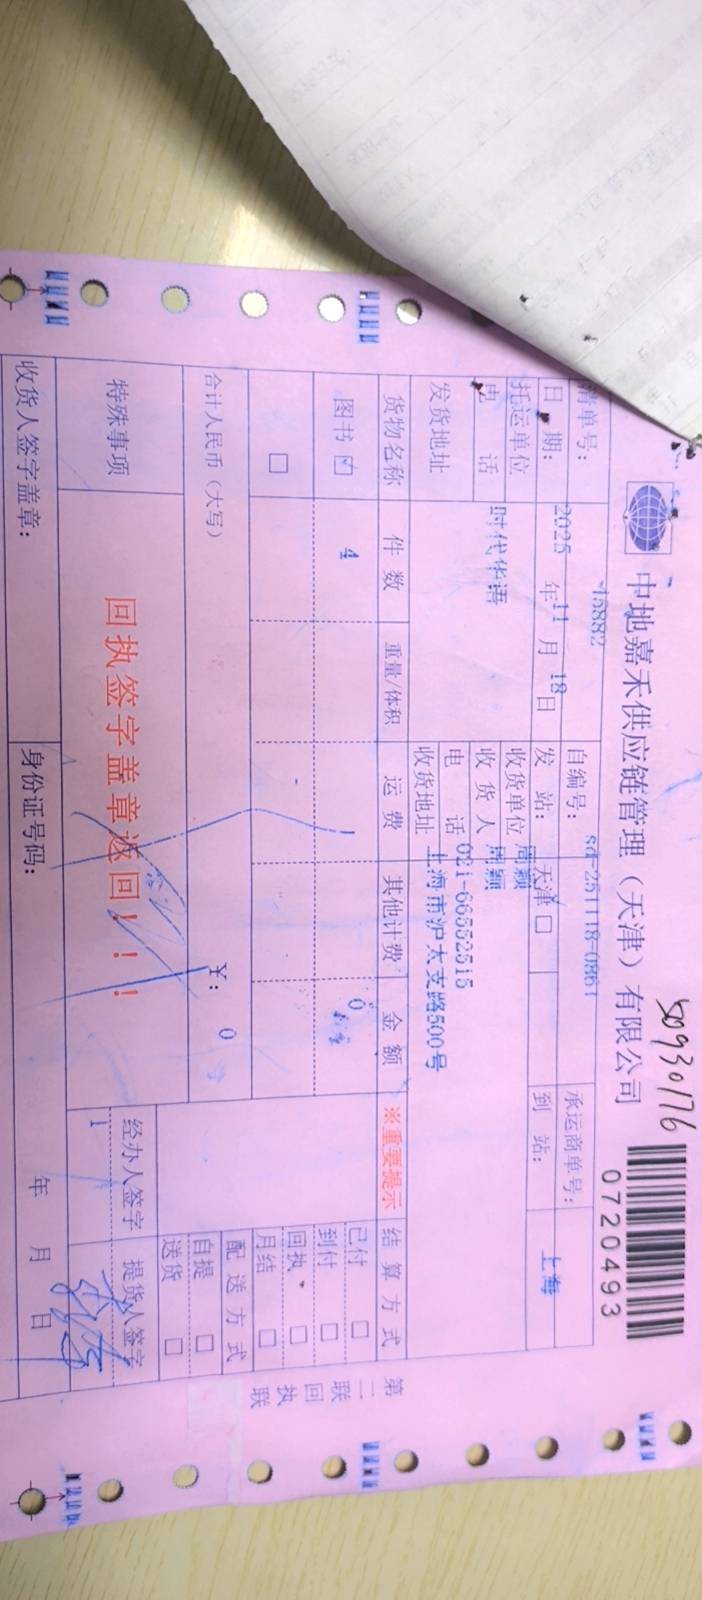 中地嘉禾供应链管理（天津）有限公司
80930176
0720493
清单号： 15882 自编号： sd-251118-0861 承运商单号：
日 期： 2025 年 11 月 18 日 发 站： 天津 □ 到 站： 上海
托运单位 时代华语 收货单位 周颖
电 话 收 货 人 周颖
发货地址 电 话 021-66552515
收货地址 上海市沪太支路500号
货物名称 件 数 重量/体积 运 费 其他计费 金 额 ※重要提示 结 算 方 式
图书 ☑ 4 0 已付 □
到付 □
□ 回执 □
月结 □
合计人民币（大写） ￥： 0 配 送 方 式
自提 □
送货 □
特殊事项 回执签字盖章返回！！！ 经办人签字 提货人签字
1
收货人签字盖章： 身份证号码： 年 月 日
第二联 回执联